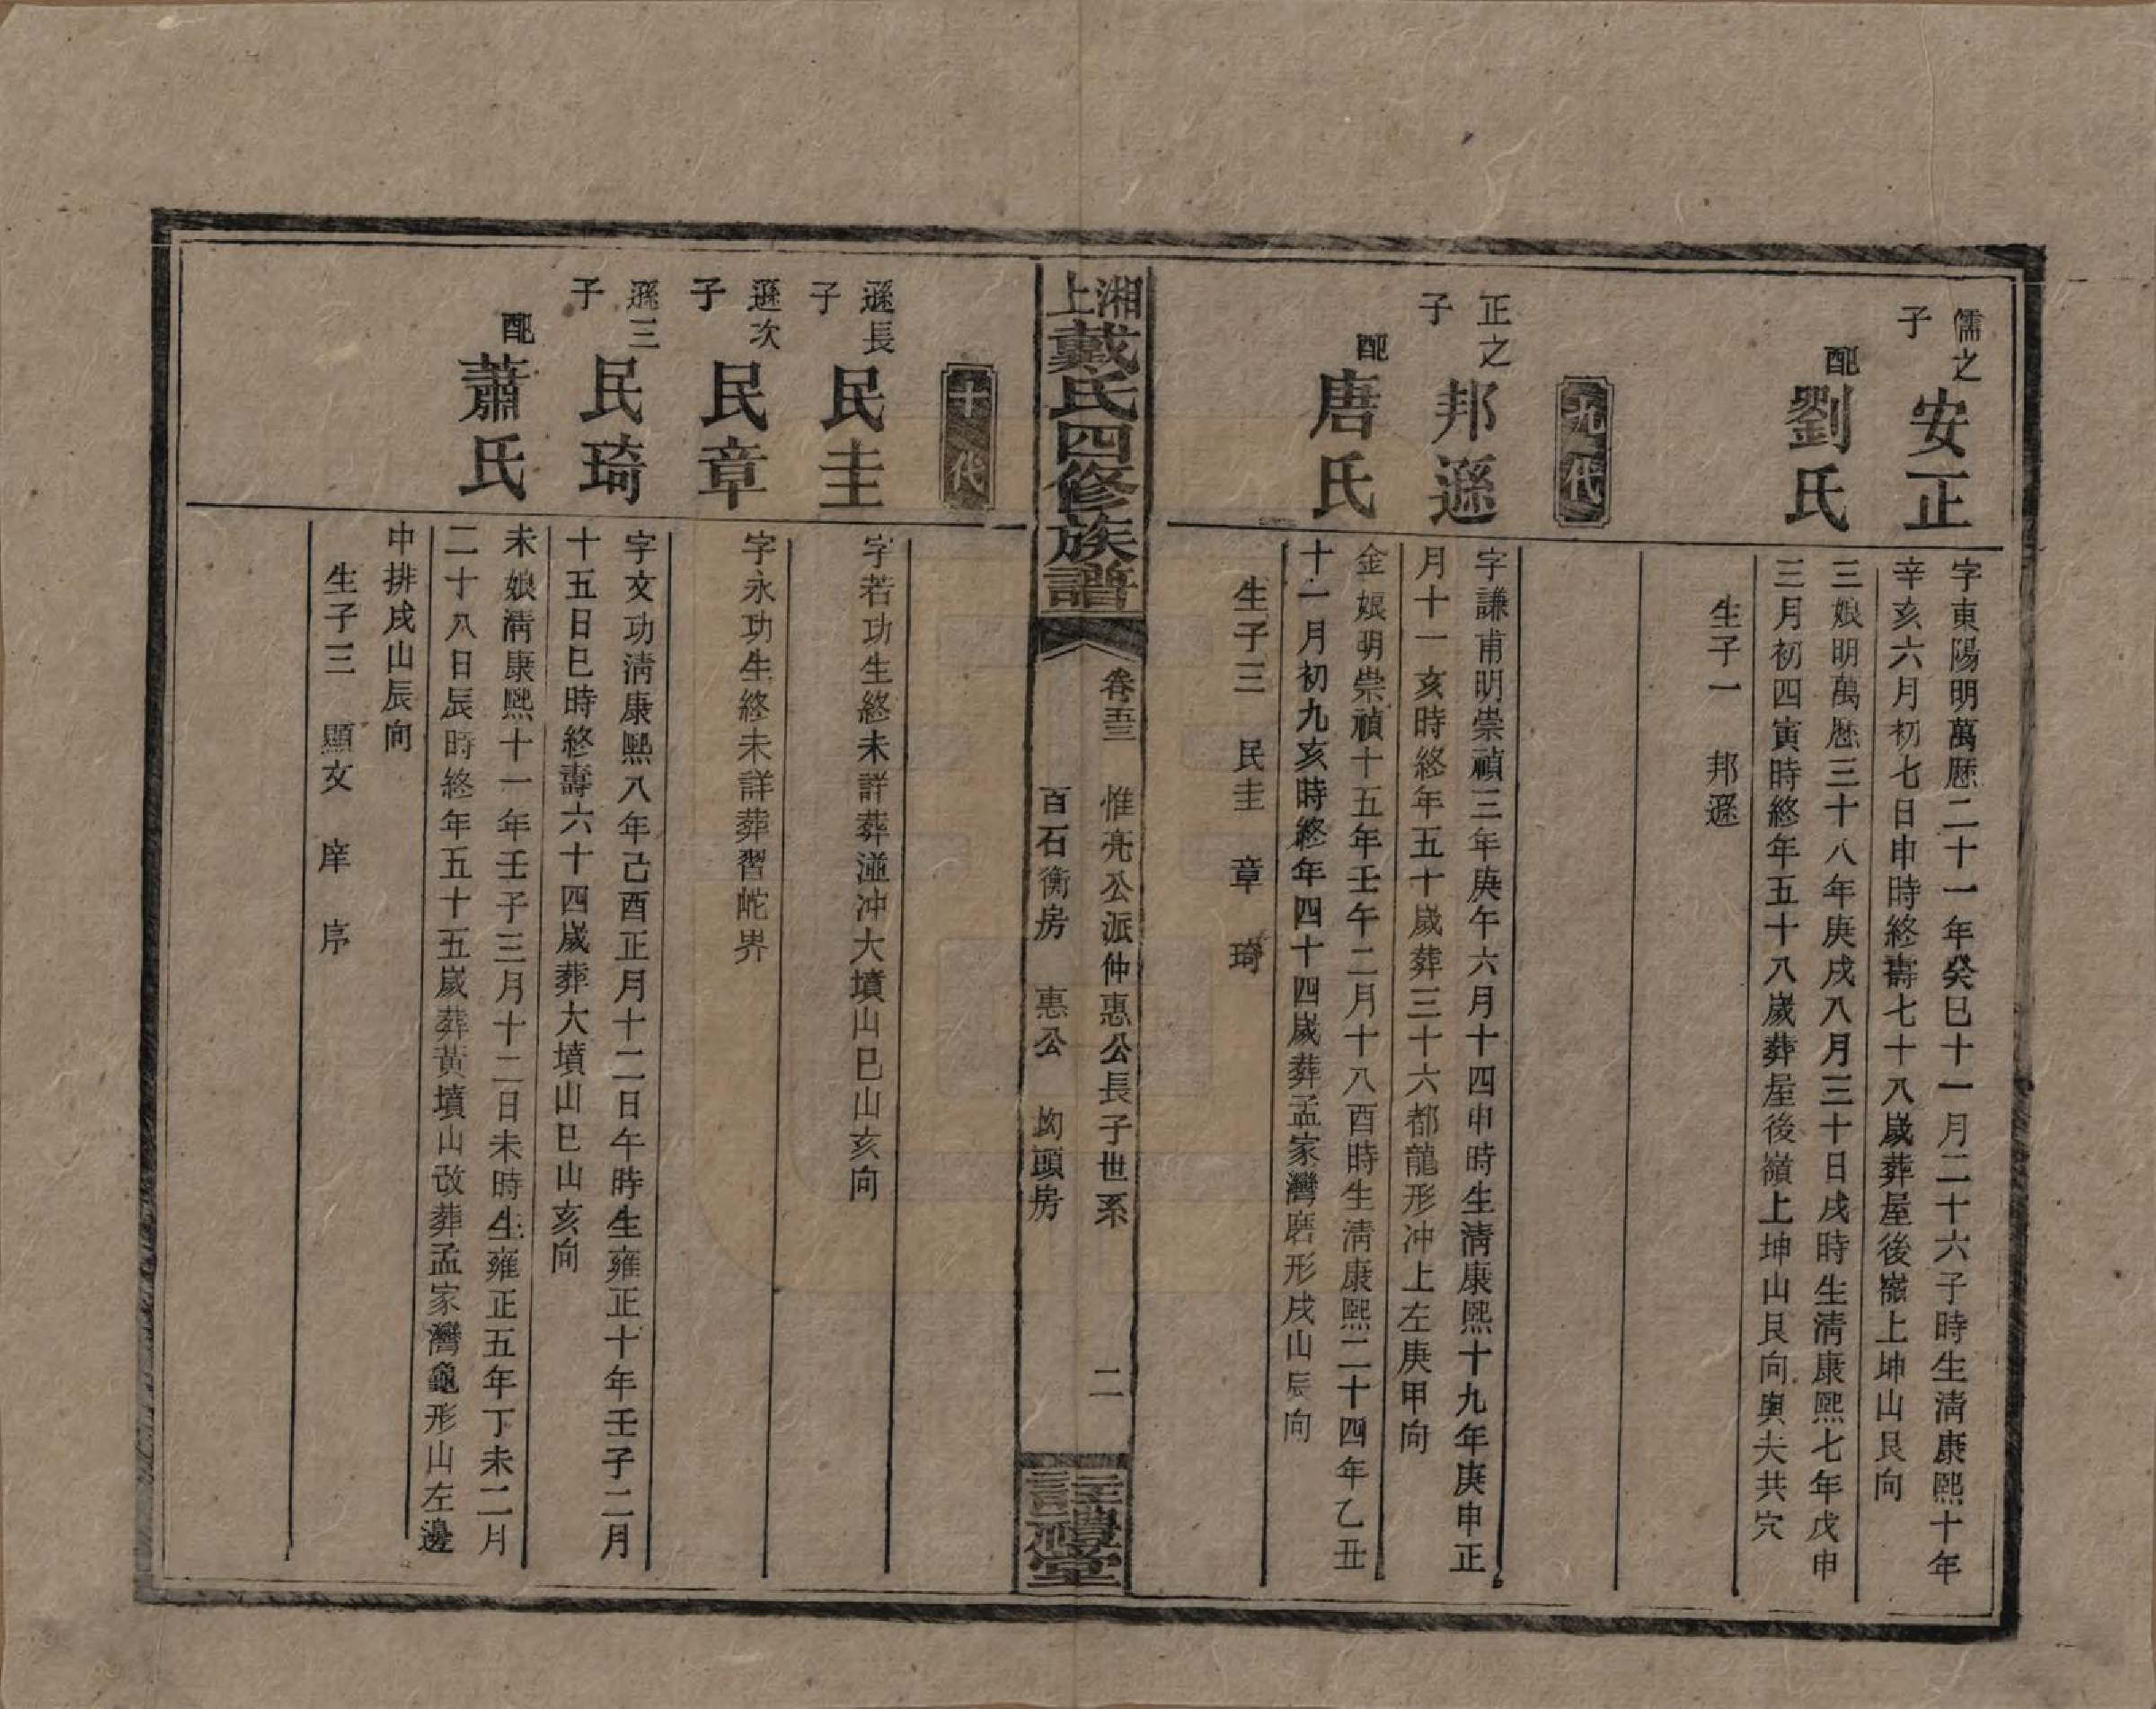 儒之子
安正
字東陽明萬歷二十一年癸巳十一月二十六子時生淸康熙十年
辛亥六月初七日申時終壽七十八歲葬屋後嶺上坤山艮向
配
劉氏
三娘明萬歷三十八年庚戌八月三十日戌時生淸康熙七年戊申
三月初四寅時終年五十八歲葬屋後嶺上坤山艮向與夫共穴
生子一 邦遜
九代
正之子
邦遜
字謙甫明崇禎三年庚午六月十四申時生淸康熙十九年庚申正
月十一亥時終年五十歲葬三十六都龍形冲上左庚甲向
配
唐氏
金娘明崇禎十五年壬午二月十八酉時生淸康熙二十四年乙丑
十一月初九亥時終年四十四歲葬孟家灣磨形戌山辰向
生子三 民圭 章 琦
湘上戴氏四修族譜
卷五三 惟亮公派仲惠公長子世系 二
百石衡房 惠公 坳頭房
註禮堂
十代
遜長子
民圭
字若功生終未詳葬湴冲大墳山巳山亥向
遜次子
民章
字永功生終未詳葬習蛇界
遜三子
民琦
字文功淸康熙八年己酉正月十二日午時生雍正十年壬子二月
十五日巳時終壽六十四歲葬大墳山巳山亥向
配
蕭氏
未娘淸康熙十一年壬子三月十二日未時生雍正五年丁未二月
二十八日辰時終年五十五歲葬黃墳山改葬孟家灣龜形山左邊
中排戌山辰向
生子三 顯文 庠 序